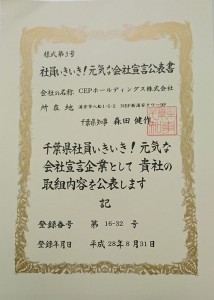 様式第3号
社員いきいき!元気な会社宣言公表書
会社の名称 CEPホールディングス株式会社
所在地 浦安市入船1-5-2
千葉県知事 森田 健作
千葉県社員いきいき!元気な
会社宣言企業として 貴社の
取組内容を公表します
記
登録番号 第 16-32 号
登録年月日 平成28年8月31日